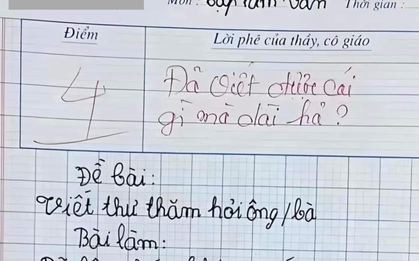 Môn : Tập làm văn Thời gian :
Điểm
Lời phê của thầy, cô giáo
4
Đã viết được cái
gì mà dài hả ?
Đề bài:
Viết thư thăm hỏi ông/bà
Bài làm: